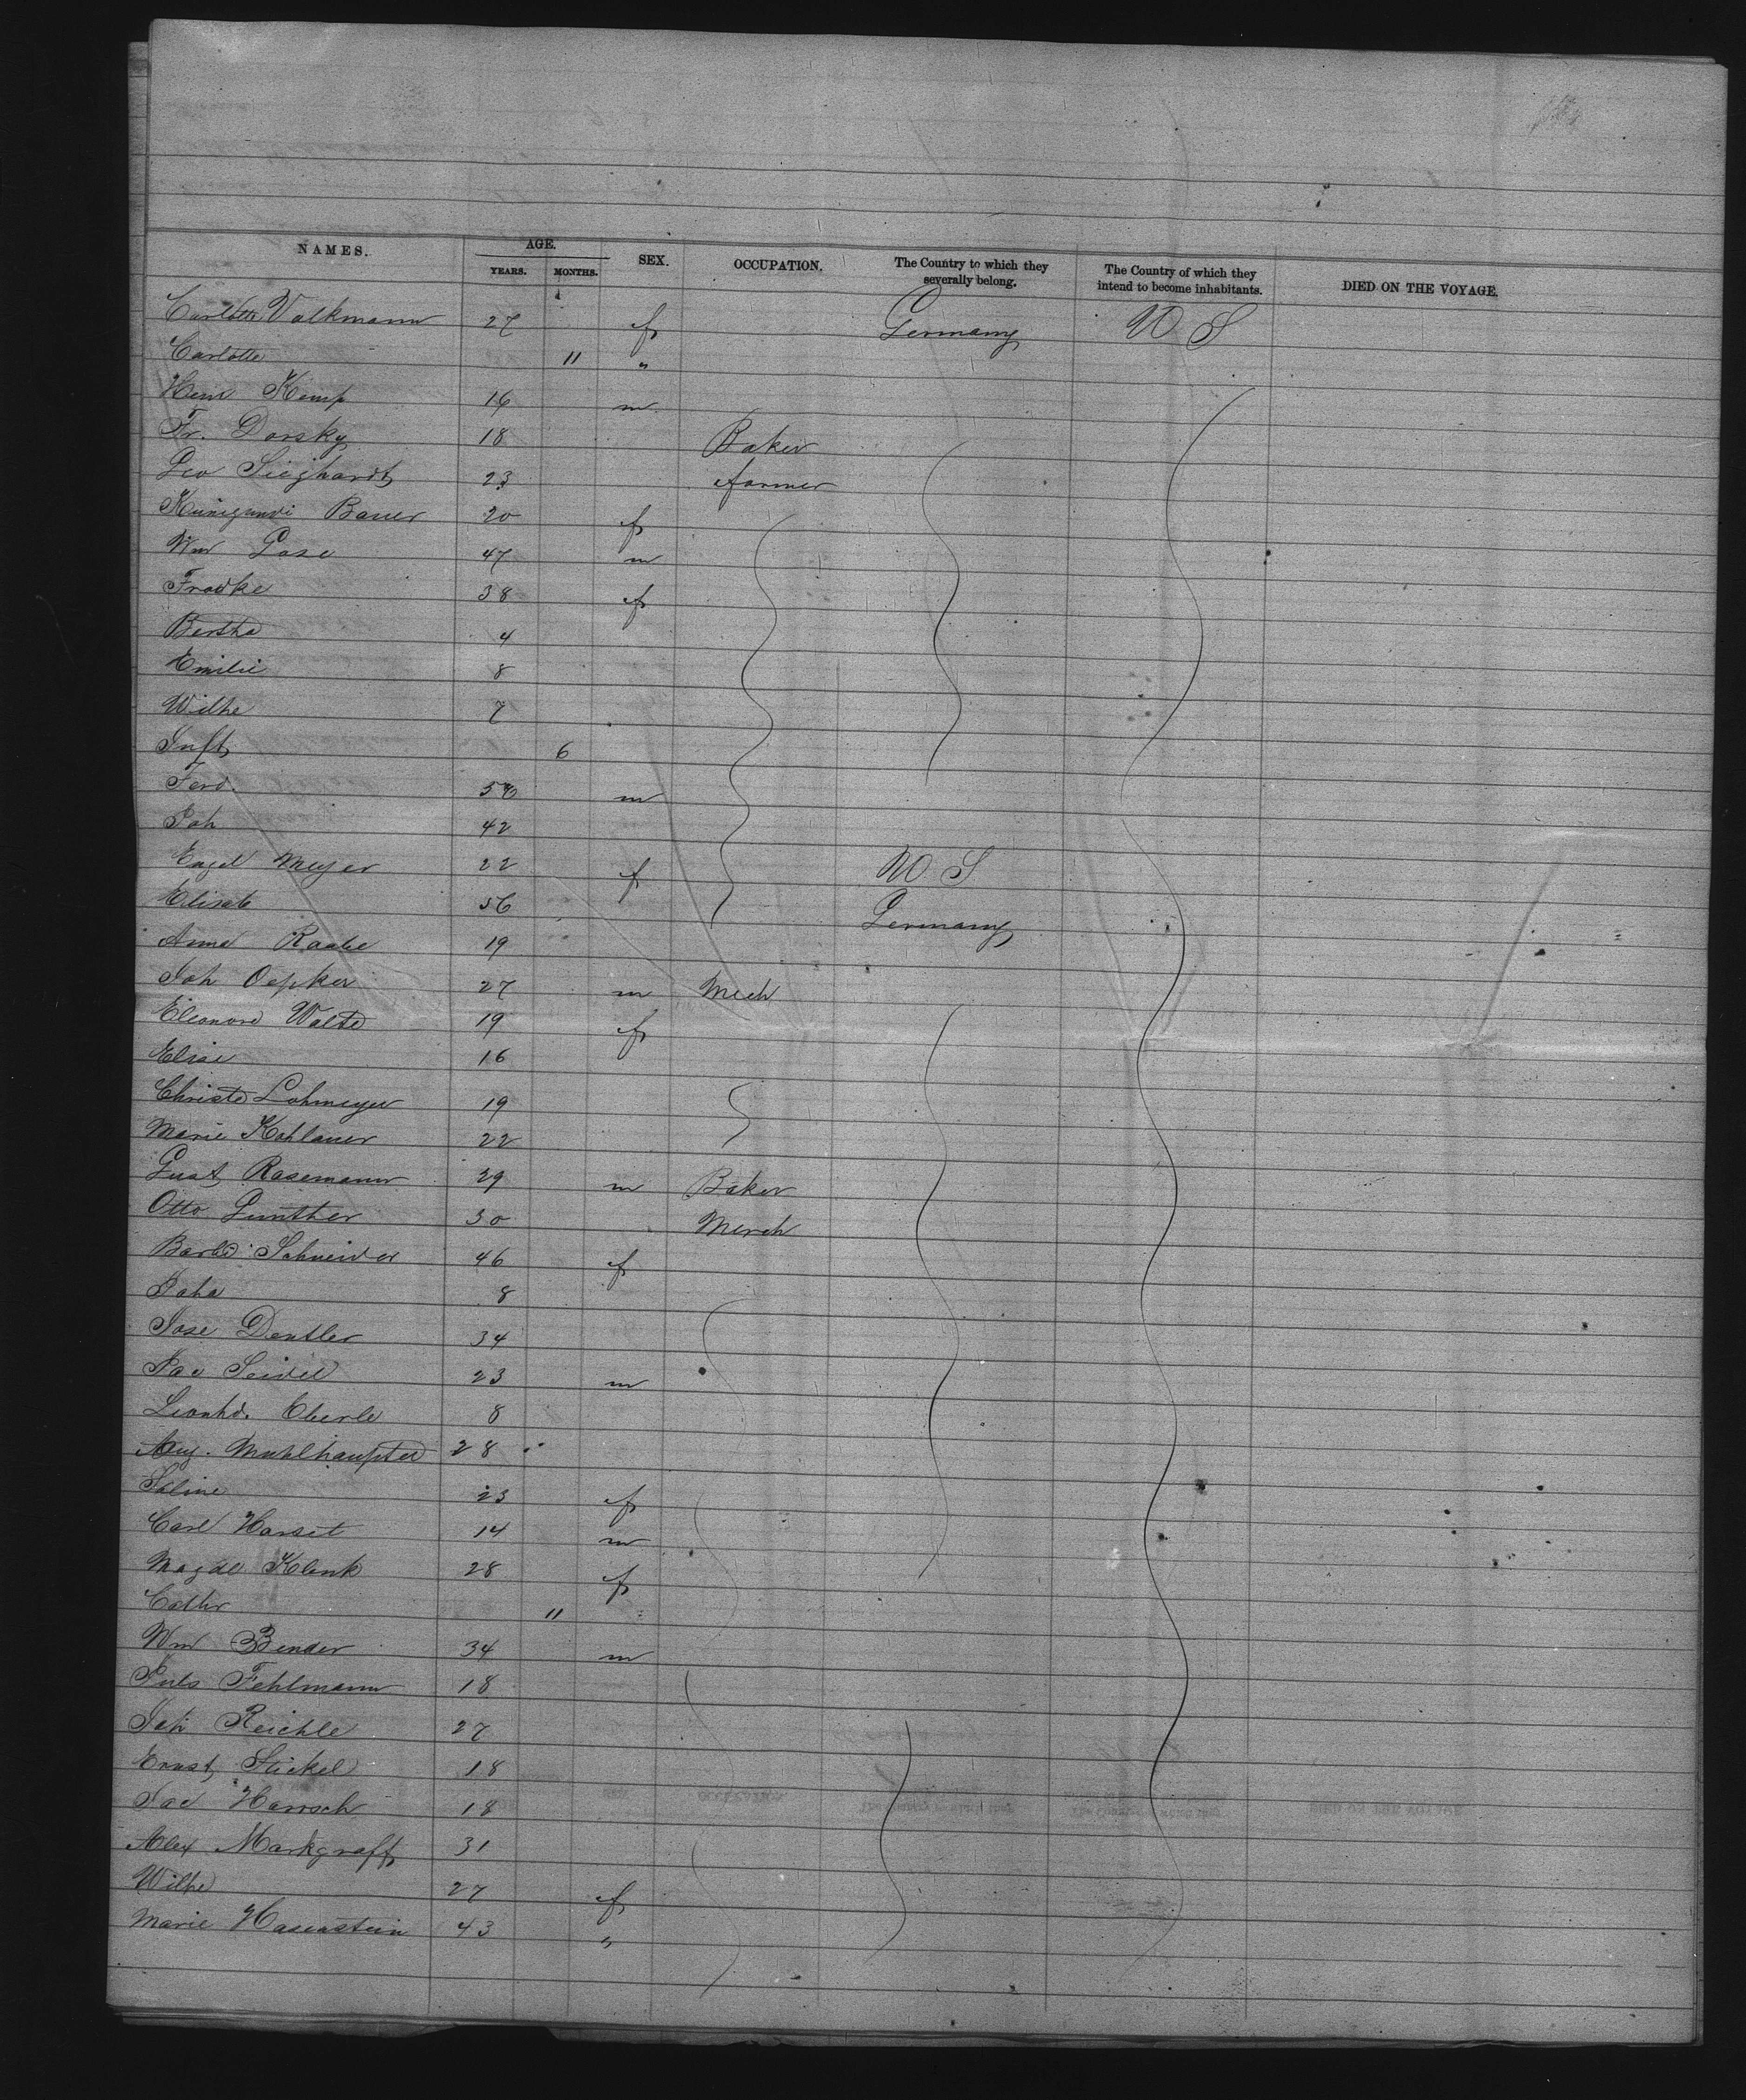 NAMES. AGE. SEX. OCCUPATION. The Country to which they severally belong. The Country of which they intend to become inhabitants. DIED ON THE VOYAGE.
YEARS. MONTHS.
Carlotte Volkmann 27 f Germany U S
Carlotte 11 "
Hein Kemp 16 m
Fr. Dorsky 18 Baker
Leo Sieghardt 23 farmer
Kunigundi Bauer 20 f
Wm Gose 47 m
Frauke 38 f
Bertha 4
Emilie 8
Wilhe 7
Inft 6
Ferd. 58 m
Joh 42
Engel Meyer 22 f U. S.
Elisab 56 Germany
Anna Raabe 19
Joh Oepker 27 m Mech
Eleonore Walte 19 f
Elise 16
Christe Lohmeyer 19
Marie Kohlauer 22
Gust Rasemann 29 m Baker
Otto Gunther 30 Merch
Barba Schneider 46 f
Joha 8
Jose Dentler 34
Jac Seidel 23 m
Leonhd. Eberle 8
Aug. Muhlhaupter 28
Saline 23 f
Carl Harset 14 m
Magde Klenk 28 f
Cathr 11
Wm Bender 34 m
Juls Fehlmann 18
Joh Reichle 27
Ernst Stickel 18
Jac Harrsch 18
Alex Markgraff 31
Wilhe 27 f
Marie Hasenstein 43 "